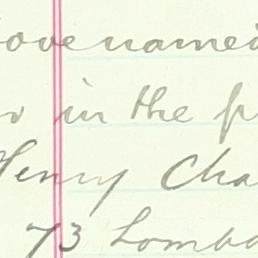 ovenamed
in the p
Henry Cha
73 Lomba